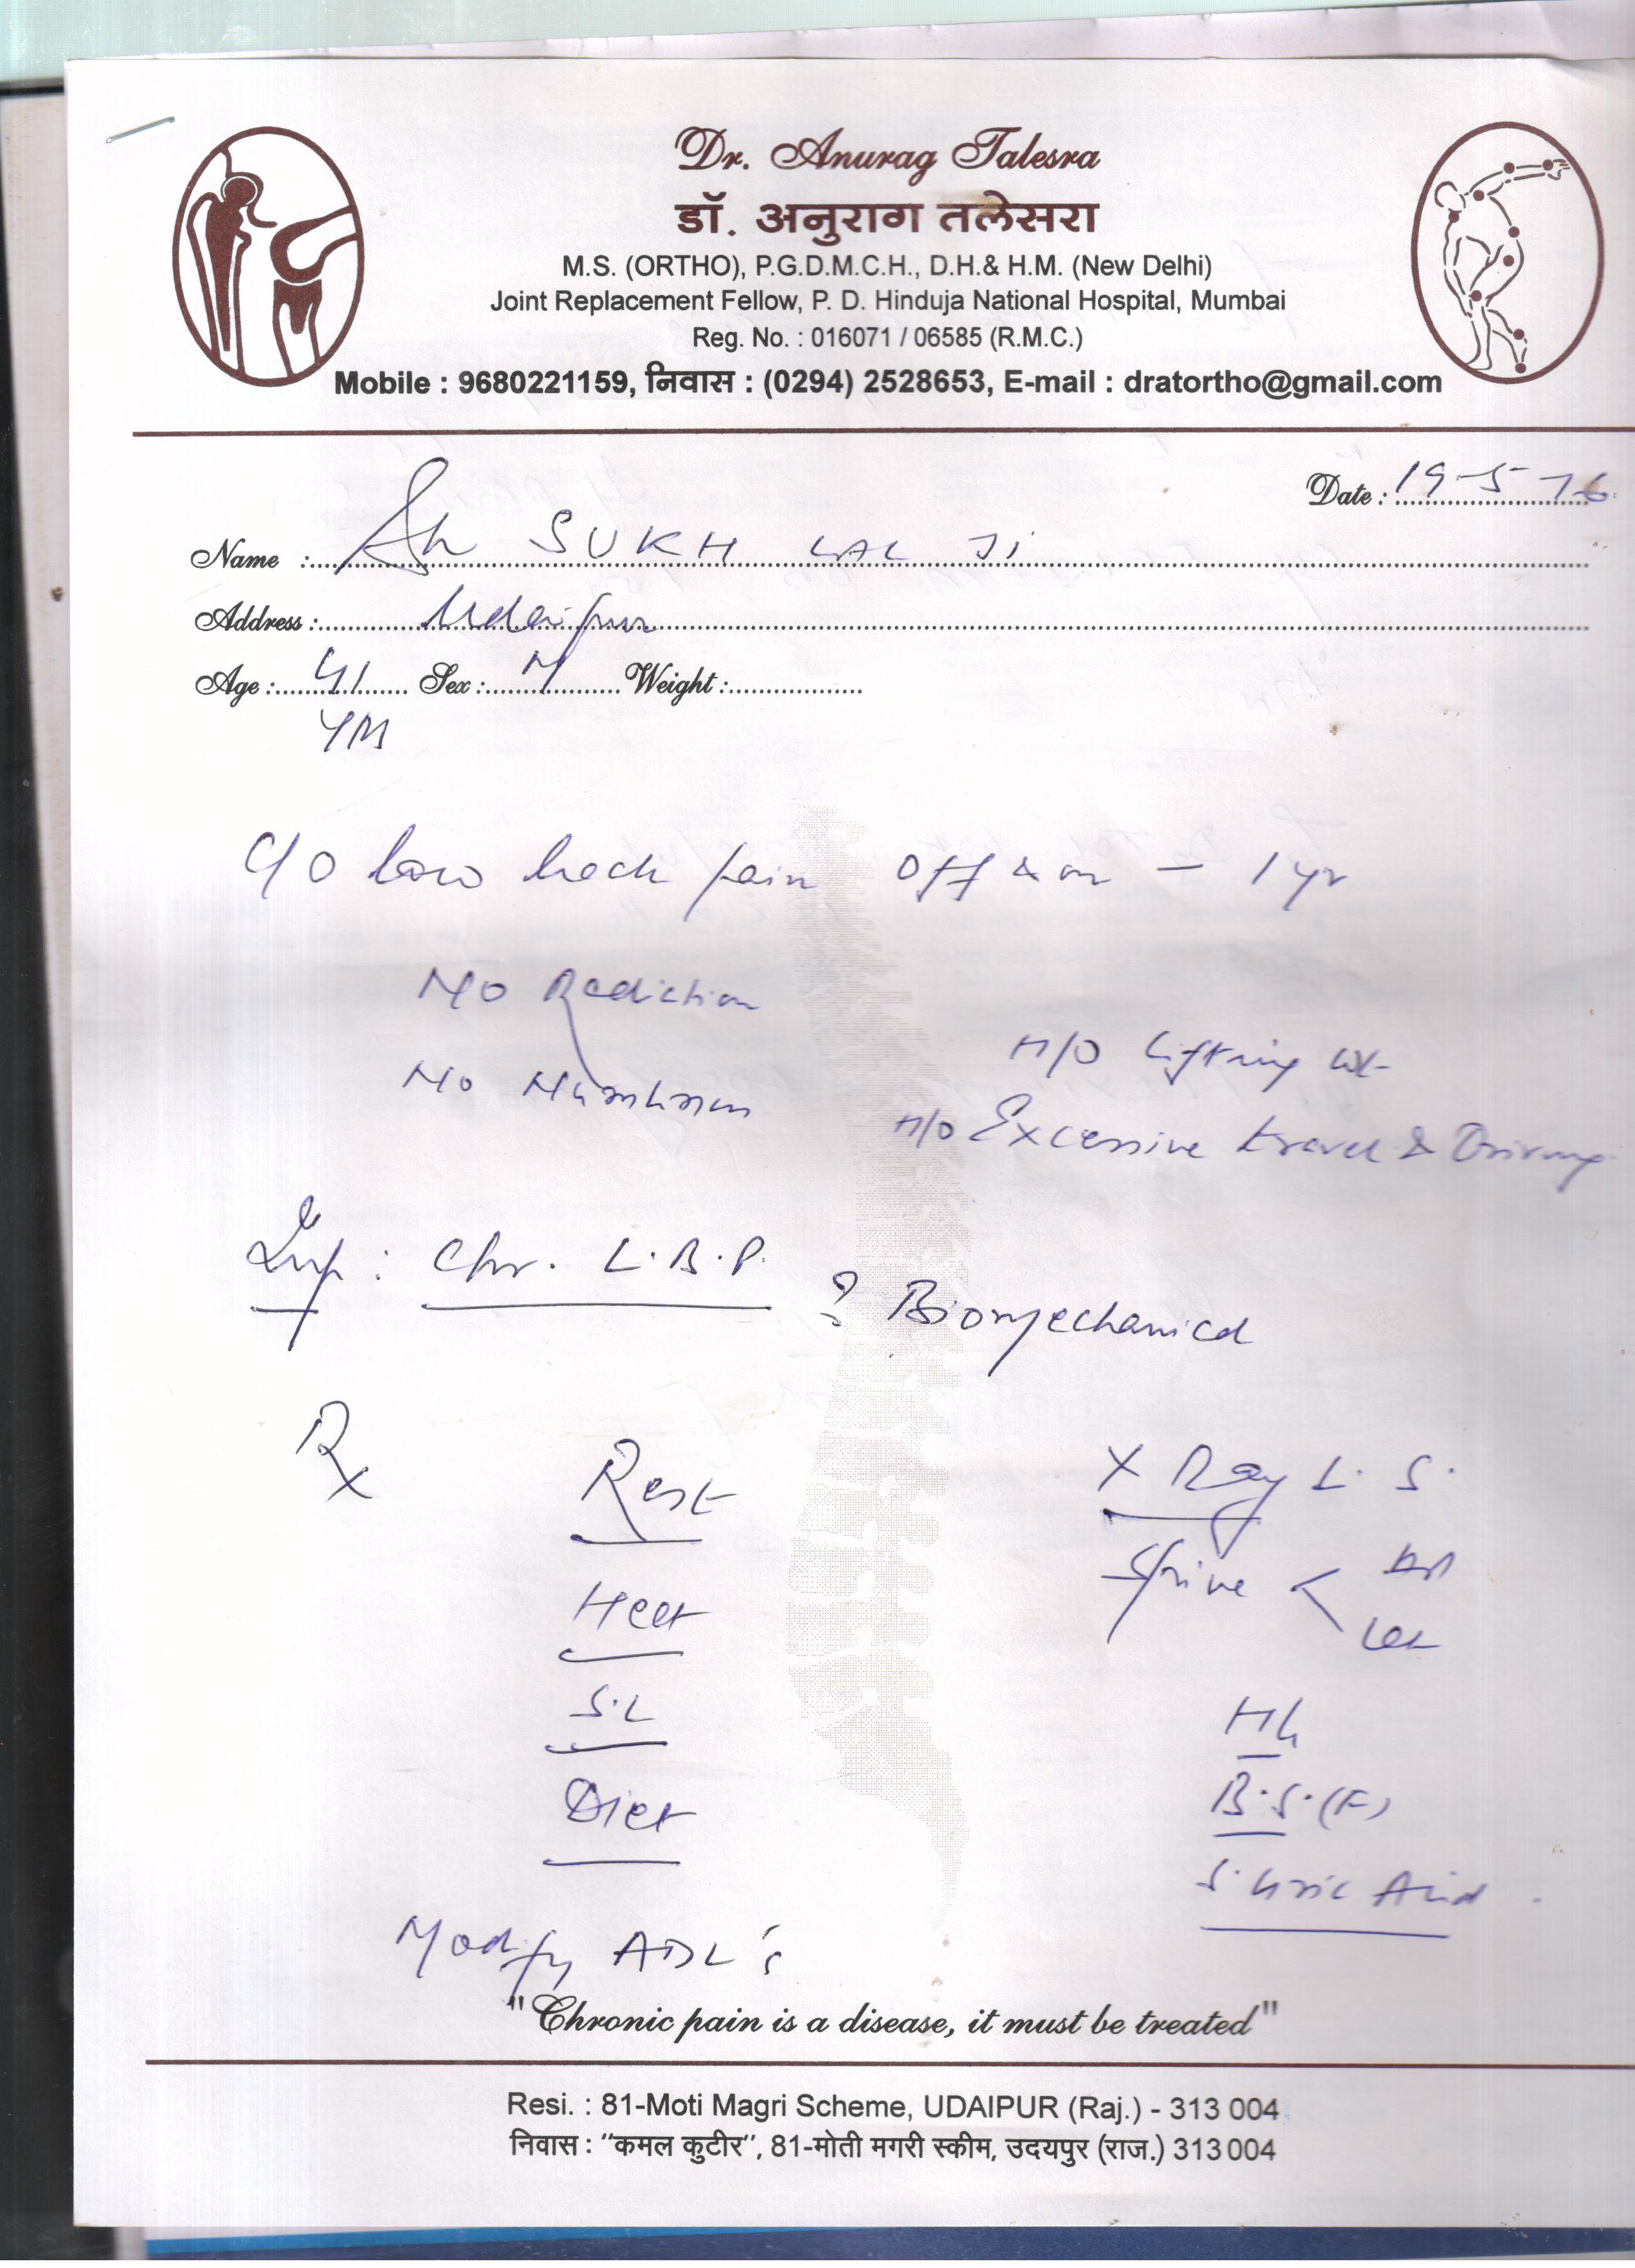 Dr. Anurag Talesra
डॉ. अनुराग तलेसरा
M.S. (ORTHO), P.G.D.M.C.H., D.H.& H.M. (New Delhi)
Joint Replacement Fellow, P. D. Hinduja National Hospital, Mumbai
Reg. No. : 016071 / 06585 (R.M.C.)
Mobile : 9680221159, निवास : (0294) 2528653, E-mail : dratortho@gmail.com
Date : 19-5-16
Name : Sh SUKH LAL JI
Address : Udaipur
Age : 41 Sex : M Weight :
C/O low back pain off & on – 1 yr
No Radiation
No Numbness
H/O Lifting wt
H/O Excessive travel & Driving
Imp : Chr. L.B.P. ? Biomechanical
Rx
Rest
Heat
S.L
Diet
Modify ADL's
X Ray L. S.
Spine < AP
Lat
Hb
B.S.(F)
S. Uric Acid
"Chronic pain is a disease, it must be treated"
Resi. : 81-Moti Magri Scheme, UDAIPUR (Raj.) - 313 004
निवास : “कमल कुटीर”, 81-मोती मगरी स्कीम, उदयपुर (राज.) 313 004